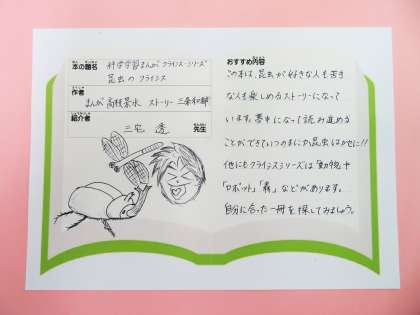 本の題名
科学学習まんが クライシス・シリーズ
昆虫のクライシス
作者
まんが 高枝景水 ストーリー 三条和都
紹介者
三宅 透 先生
おすすめ内容
この本は、昆虫が好きな人も苦手
な人も楽しめるストーリーになって
います。夢中になって読み進める
ことができていつのまにか昆虫はかせに!!
他にもクライシスシリーズは「動物」や
「ロボット」「森」などがあります。
自分に合った一冊を探してみましょう。